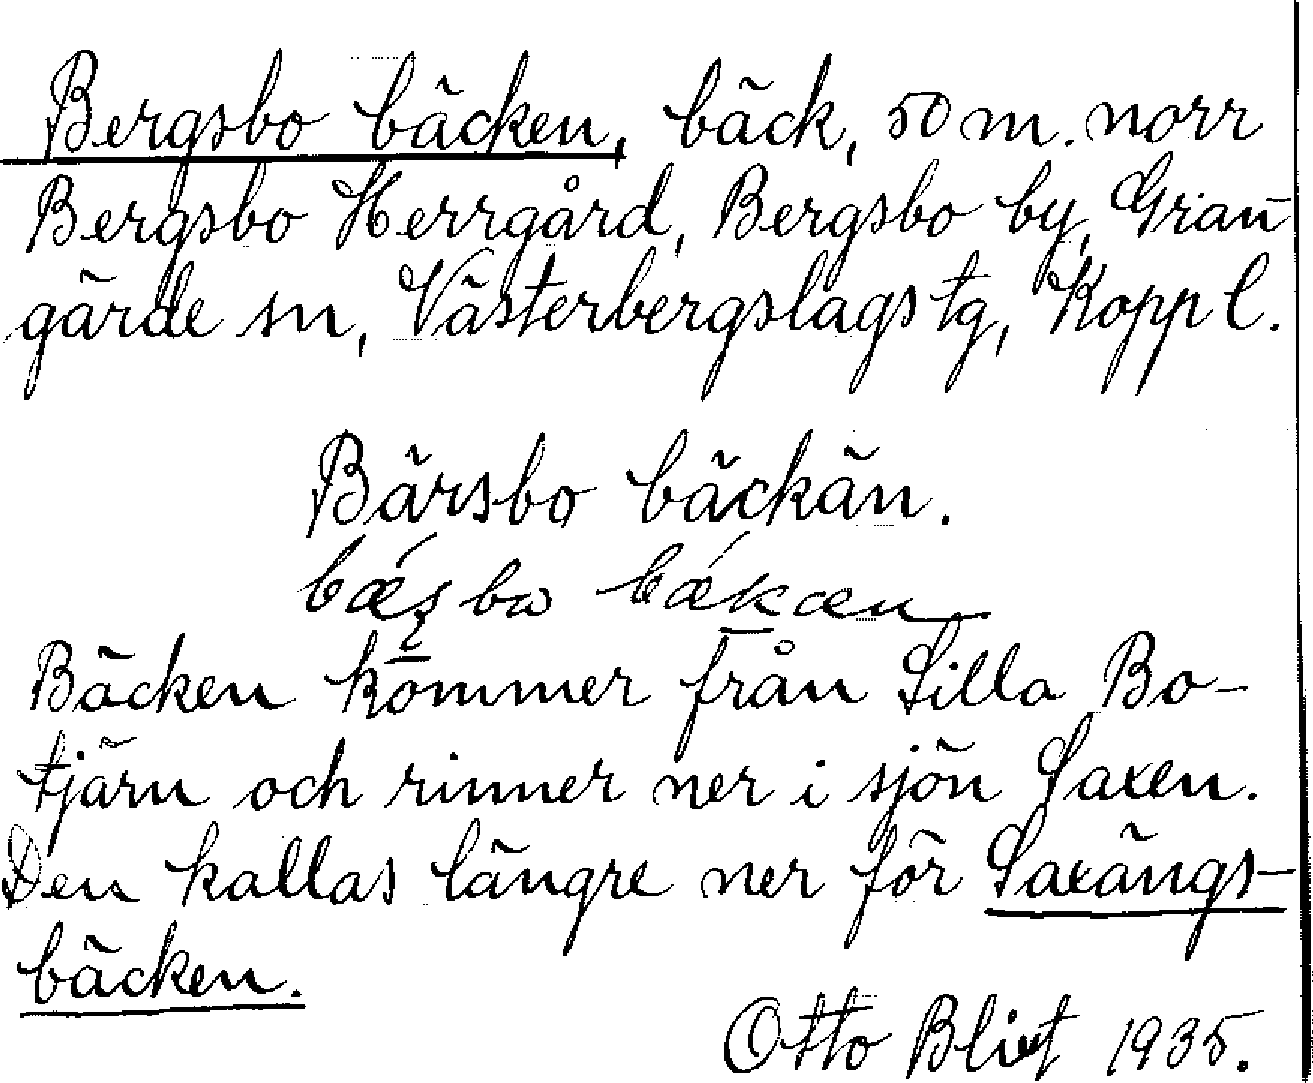 Bergsbo bäcken, bäck, 50 m. norr
Bergsbo Herrgård, Bergsbo by, Gran-
gärde sn, Västerbergslags tg, Kopp l.
Bärsbo bäckän.
bæʂbω bækæn
Bäcken kommer från Lilla Bo-
tjärn och rinner ner i sjön Saxen.
Den kallas längre ner för Saxängs-
bäcken.
Otto Blixt 1935.